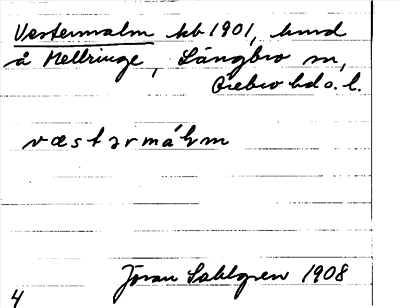 Västermalm kb 1901, hmd
å Mellringe, Långbro sn,
Örebro hd o. l.
væstərmál̨m
Jöran Sahlgren 1908
4